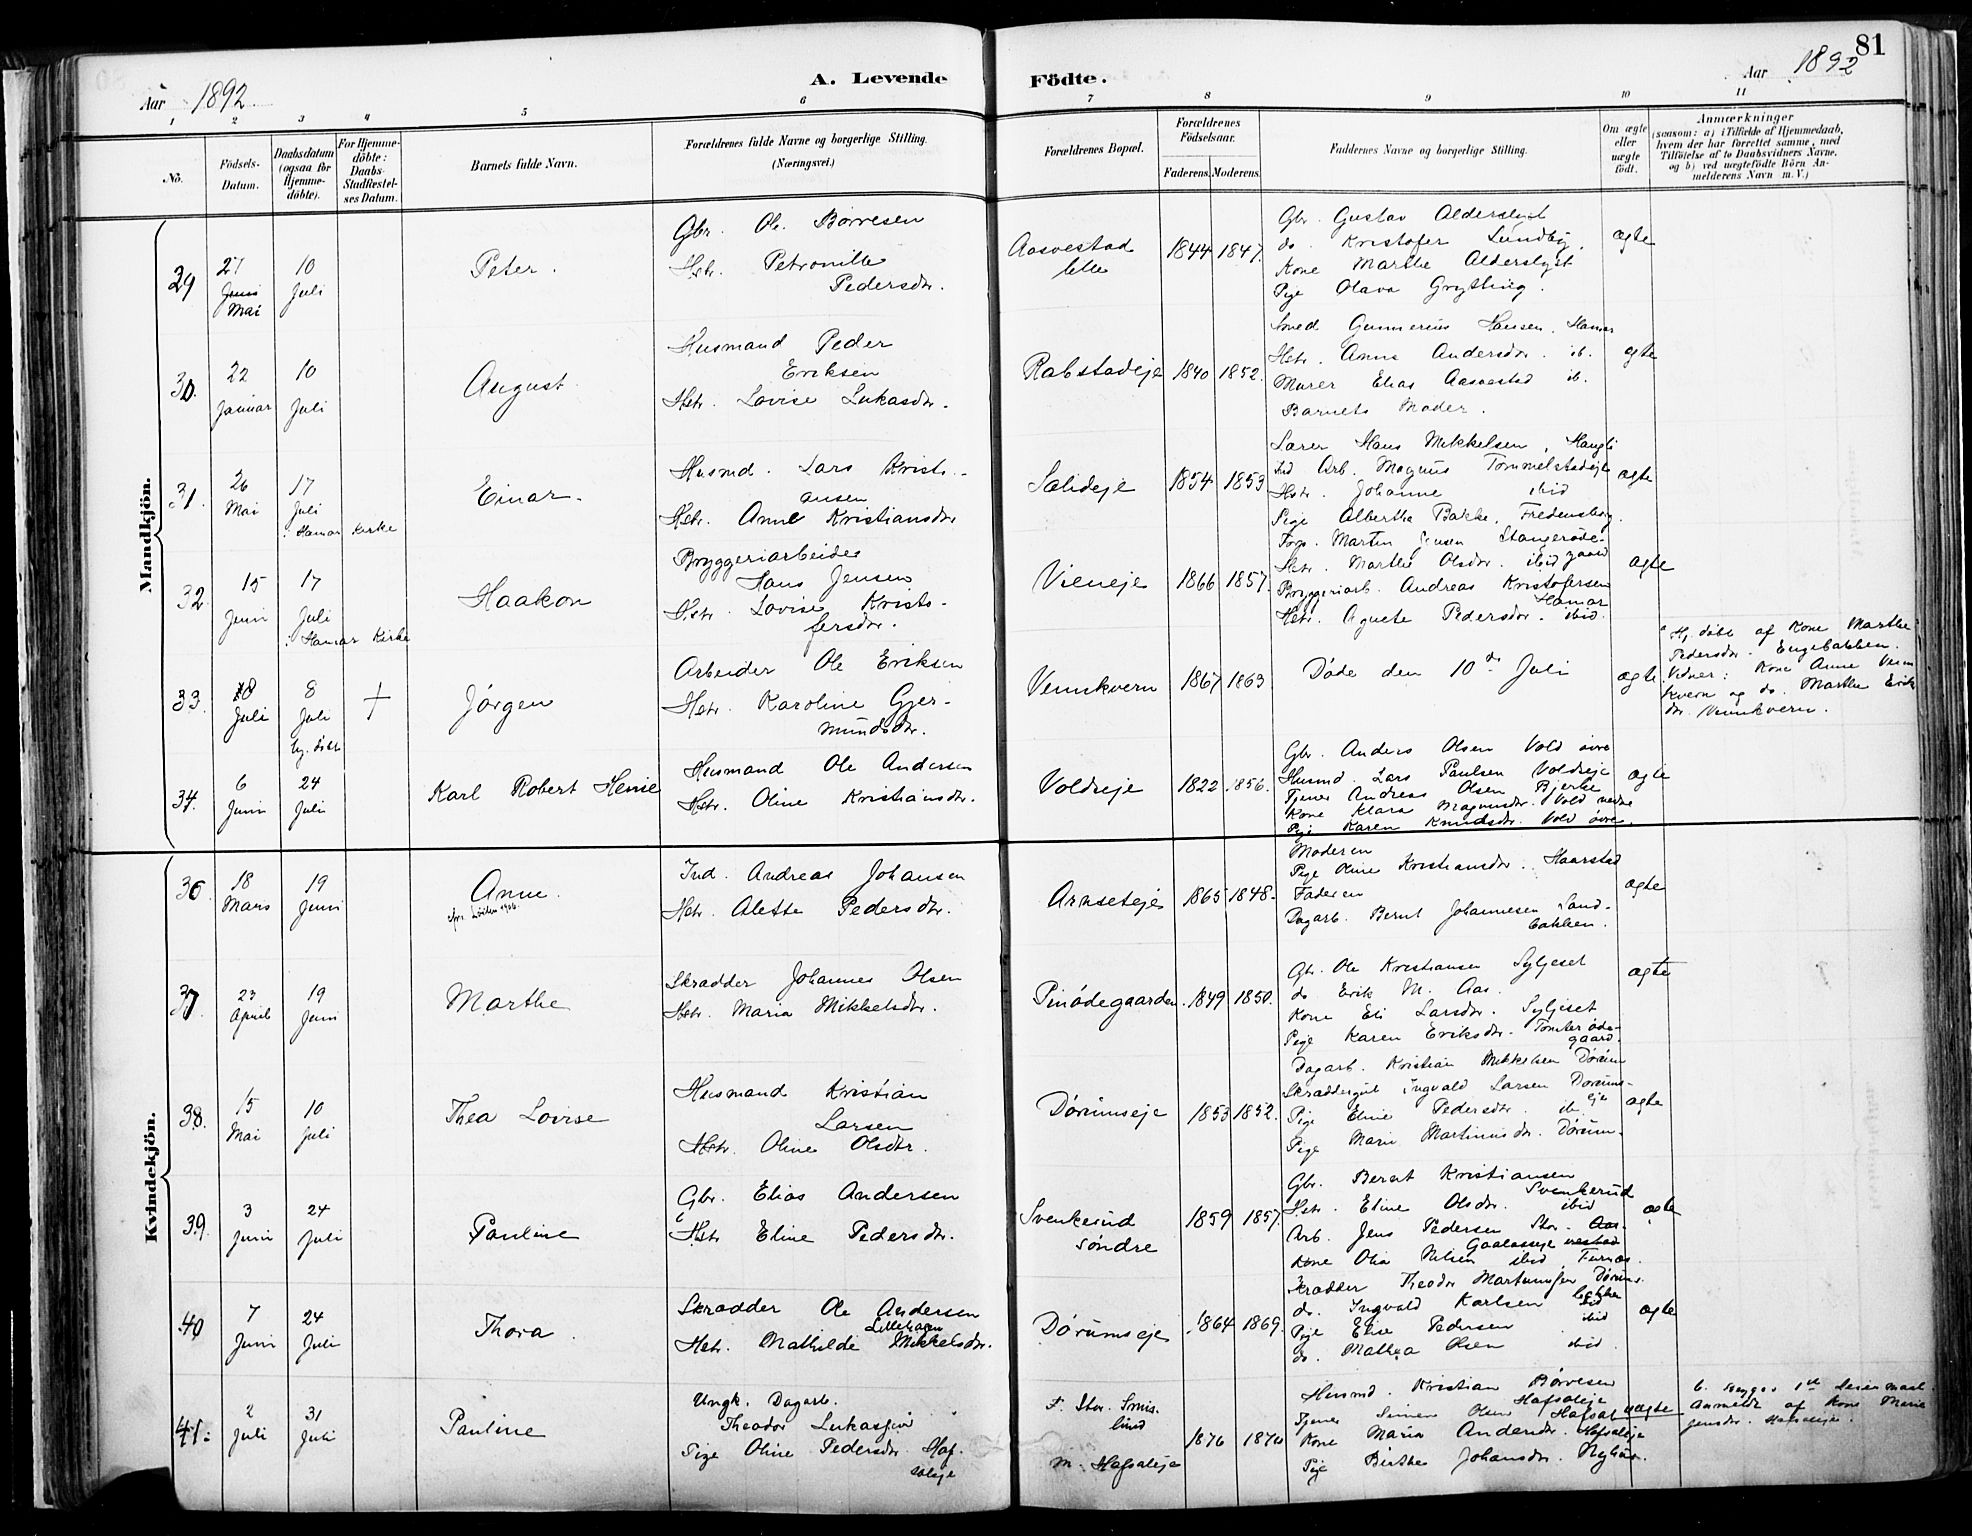 81
Aar 1892
A. Levende
Födte.
Aar 1892
1 2 3 4 5 6 7 8 9 10 11
No.
Födsels-Datum.
Daabsdatum (ogsaa for Hjemme-döbte).
For Hjemme-döbte: Daabs-Stadfæstel-ses Datum.
Barnets fulde Navn.
Forældrenes fulde Navne og borgerlige Stilling. (Næringsvei.)
Forældrenes Bopæl.
Forældrenes Födselsaar.
Faderens. Moderens.
Faddernes Navne og borgerlige Stilling.
Om ægte eller uægte födt.
Anmærkninger
(saasom: a) i Tilfælde af Hjemmedaab,
hvem der har forrettet samme, med
Tilföielse af to Daabsvidners Navne,
og b) ved uægtefödte Börn An-
melderens Navn m. V.)
Mandkjön.
29
27 Juni Mai
10 Juli
Peter.
Gbr. Ole Børresen
Hstr. Petronille
Pedersdtr.
Aasvestad
lille
1844 1847.
Gbr. Gustav Alderslyst
do. Kristofer Lundby.
Kone Marthe Alderslyst
Pige Olava Grytting.
ægte
30.
22 Januar
10 Juli
August
Husmand Peder
Eriksen
Hstr. Lovise Lukasdtr.
Rabstadeje
1840 1852.
Smed Gunnerius Hansen, Hamar
Hstr. Anne Andersdtr. ib.
Murer Elias Aasvestad ib.
Barnets Moder.
ægte
31.
26 Mai
17 Juli
: Hamar Kirke
Einar.
Husmd. Lars Kristi-
ansen
Hstr. Anne Kristiansdtr
Sælideje
1854 1853
Lærer Hans Mikkelsen, Haugli
Ind Arb. Magnus Tommelstadeje
Hstr. Johanne ibid
Pige Alberthe Bakke, Fredensborg.
ægte
32.
15 Juni
17 Juli
: Hamar Kirke
Haakon
Bryggeriarbeider
Hans Jensen
Hstr. Lovise Kristo-
fersdtr.
Vieneje
1866 1857.
Forp. Martin Jensen Stangerøde-
gaard
Hstr. Marthe Olsdtr. ibid
Bryggeriarb. Andreas Kristofersen
Hamar
Hstr. Agnete Pedersdtr. ibid.
ægte
33.
8 Juli
8 Juli
hj. döbt
Jørgen
Arbeider Ole Eriksen
Hstr. Karoline Gjer-
mundsdtr.
Vennkvern
1867 1863
Døde den 10de Juli
ægte
Hj. döbt af Kone Marthe
Pedersdtr. Engebakken.
Vidner: Kone Anne Venn
kvern og do. Marthe Erik
dtr. Vennkvern.
34.
6 Juni
24 Juli
Karl Robert Henie
Husmand Ole Andersen
Hstr. Oline Kristiansdtr.
Voldseje
1822 1856.
Gbr. Anders Olsen Vold øvre
Husmd. Lars Paulsen Voldseje
Tjener Andreas Olsen Bjerke
Kone Klara Magnusdtr. Vold nedre
Pige Karen Knudsdtr. Vold øvre.
ægte
Kvindekjön.
36
18 Mars
19 Juni
Anne.
Ind. Andreas Johansen
Hstr. Alette Pedersdtr.
Arnseteje
1865 1848.
Moderen
Pige Oline Kristiansdtr. Haarstad
Faderen
Dagarb. Bernt Johannesen Sand-
bakken.
ægte
37.
23 April
19 Juni
Marthe
Skrædder Johannes Olsen
Hstr. Maria Mikkelsdtr.
Pinødegaarden
1849 1850.
Gbr. Ole Kristiansen Syljeset
do Erik M. Aas.
Kone Eli Larsdtr. Syljeset
Pige Karen Eriksdtr. Tomter øde-
gaard.
ægte
38.
15 Mai
10 Juli
Thea Lovise
Husmand Kristian
Larsen
Hstr. Oline Olsdtr.
Dørumseje
1853 1852.
Dagarb. Kristian Mikkelsen Dørum
Skræddergut Ingvald Larsen Dørums-
eje
Pige Eline Pedersdtr. ib.
Pige Marie Martinusdtr. Dørum.
ægte
39.
3 Juni
24 Juli
Pauline
Gbr. Elias Andersen
Hstr Eline Pedersdtr.
Svenkerud
söndre
1859 1857.
Gbr. Bernt Kristiansen
Svenkerud
Hstr. Eline Olsdtr. ibid
Arb. Jens Pedersen Stor-Aas-
Gaalaaseje vestad
Kone Olia Nilsen ibid Furnæs.
ægte
40
7 Juni
24 Juli
Thora.
Skrædder Ole Andersen
Lillehagen
Hstr. Mathilde Mikkelsdtr.
Dørumseje
1864 1869.
Skrædder Theodor Martinussen Dørum-
bakken
do. Ingvald Karlsen ibid
Pige Elise Pedersen ibid
do. Mathea Olsen ibid.
ægte
41.
2 Juli
31 Juli
Pauline
Ungk. Dagarb.
Theodor Lukassen
Pige Oline Pedersdtr Haf-
saleje
F. Stor. Smis-
lund
M. Hafsaleje
1876 1870
Husmd. Kristian Børresen
Hafsaleje
Tjener Simen Olsen Hafsal
Kone Maria Andersdtr. Hafsaleje
Pige Birthe Johansdtr. Nyhus.
uægte
b. Begges 1ste Leiermaal.
Anmeldt af Kone Marie
Jensdtr. Hafsaleje.